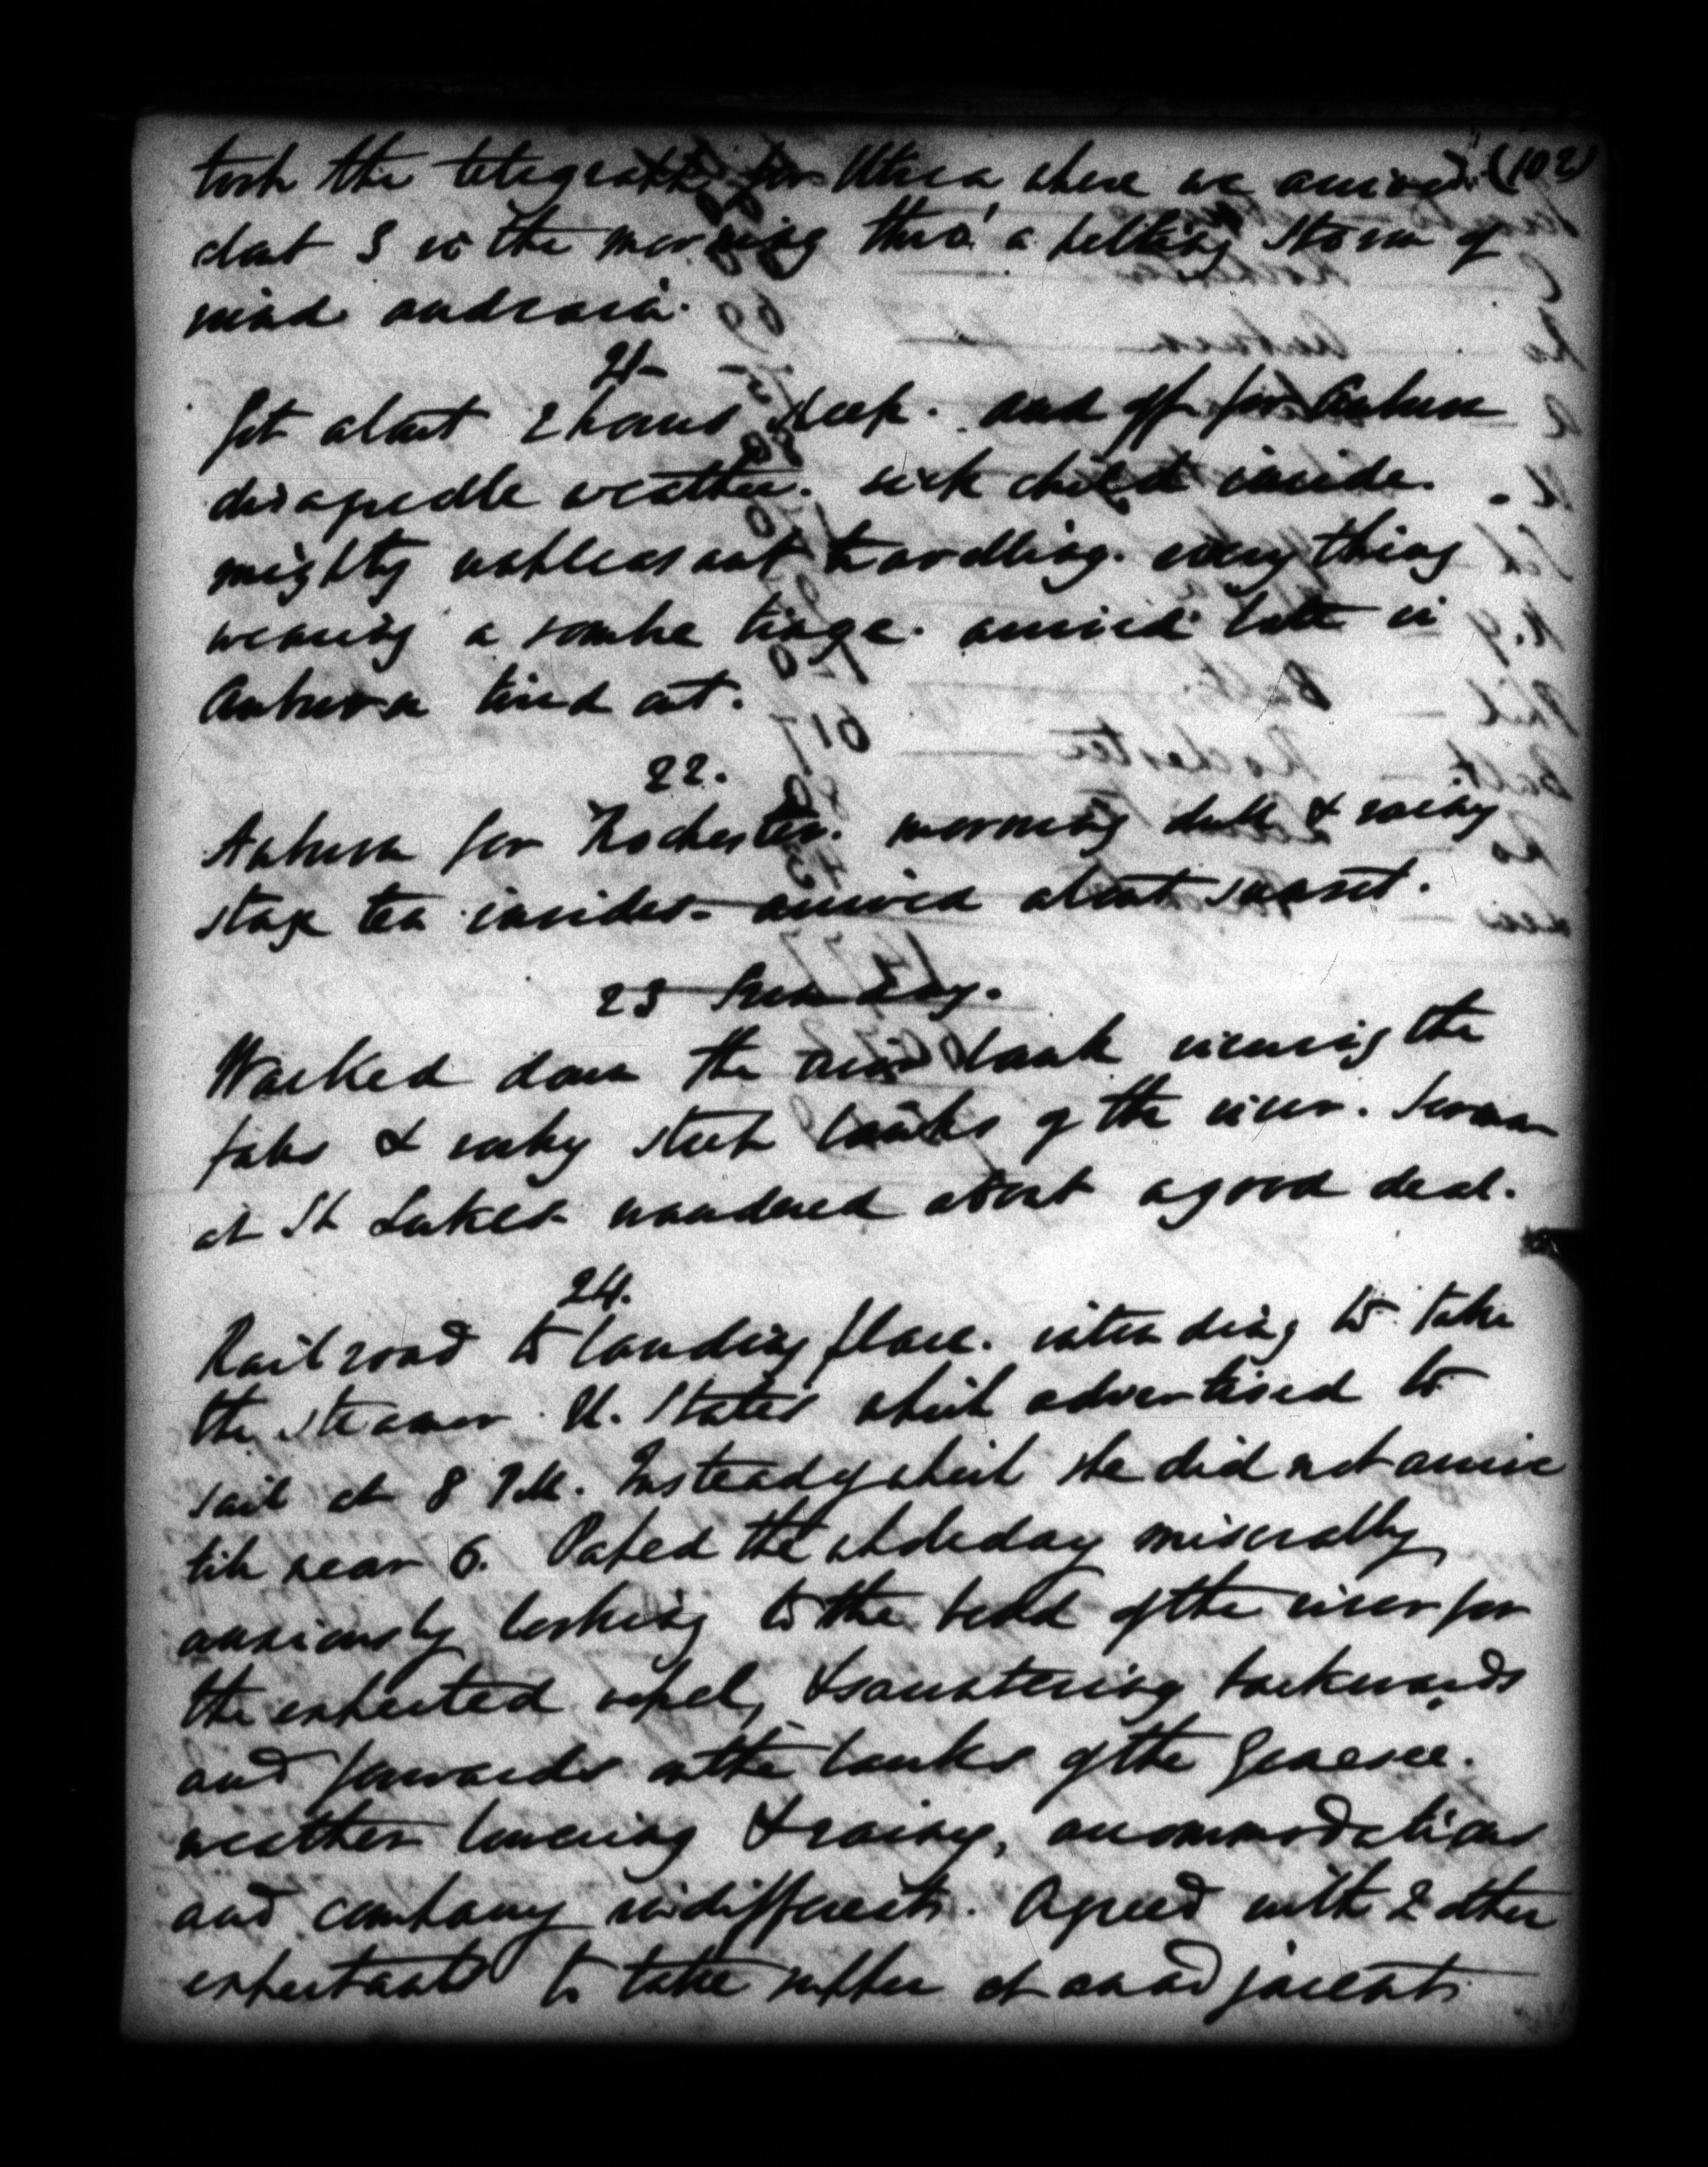 (102)
took the telegraph for Utica where we arrived
about 3 in the morning thro' a pelting storm of
wind and rain.
21
Got about 2 hours sleep. and off for Auburn
disagreeable weather. sick child inside.
mighty unpleasant travelling. every thing
wearing a sombre tinge. arrived late in
Auburn tired out.
22.
Auburn for Rochester. morning dull & rainy
stage ten insides. arrived about sunset.
23 Sunday.
Walked down the river bank viewing the
falls & rocky steep banks of the river. Sermon
at St Lukes wandered about a good deal.
24.
Railroad to landing place. intending to take
the steamer U. States which advertised to
sail at 8 Instead of which she did not arrive
till near 6. Passed the whole day miserably
anxiously looking to the bend of the river for
the expected vessel, & sauntering backwards
and forwards on the banks of the Genesee.
weather lowering & rainy, accommodations
and company indifferent. Agreed with 2 other
expectants to take supper at an adjacent